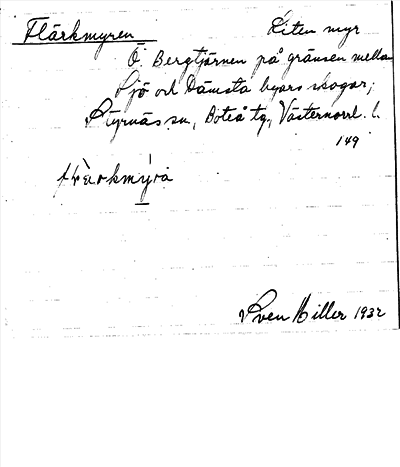 Flärkmyren Liten myr
Ö. Bergtjärnen på gränsen mellan
Sjö och Dämsta byars skogar;
Styrnäs sn, Boteå tg, Västernorrl. l.
149
Sven Hiller 1932